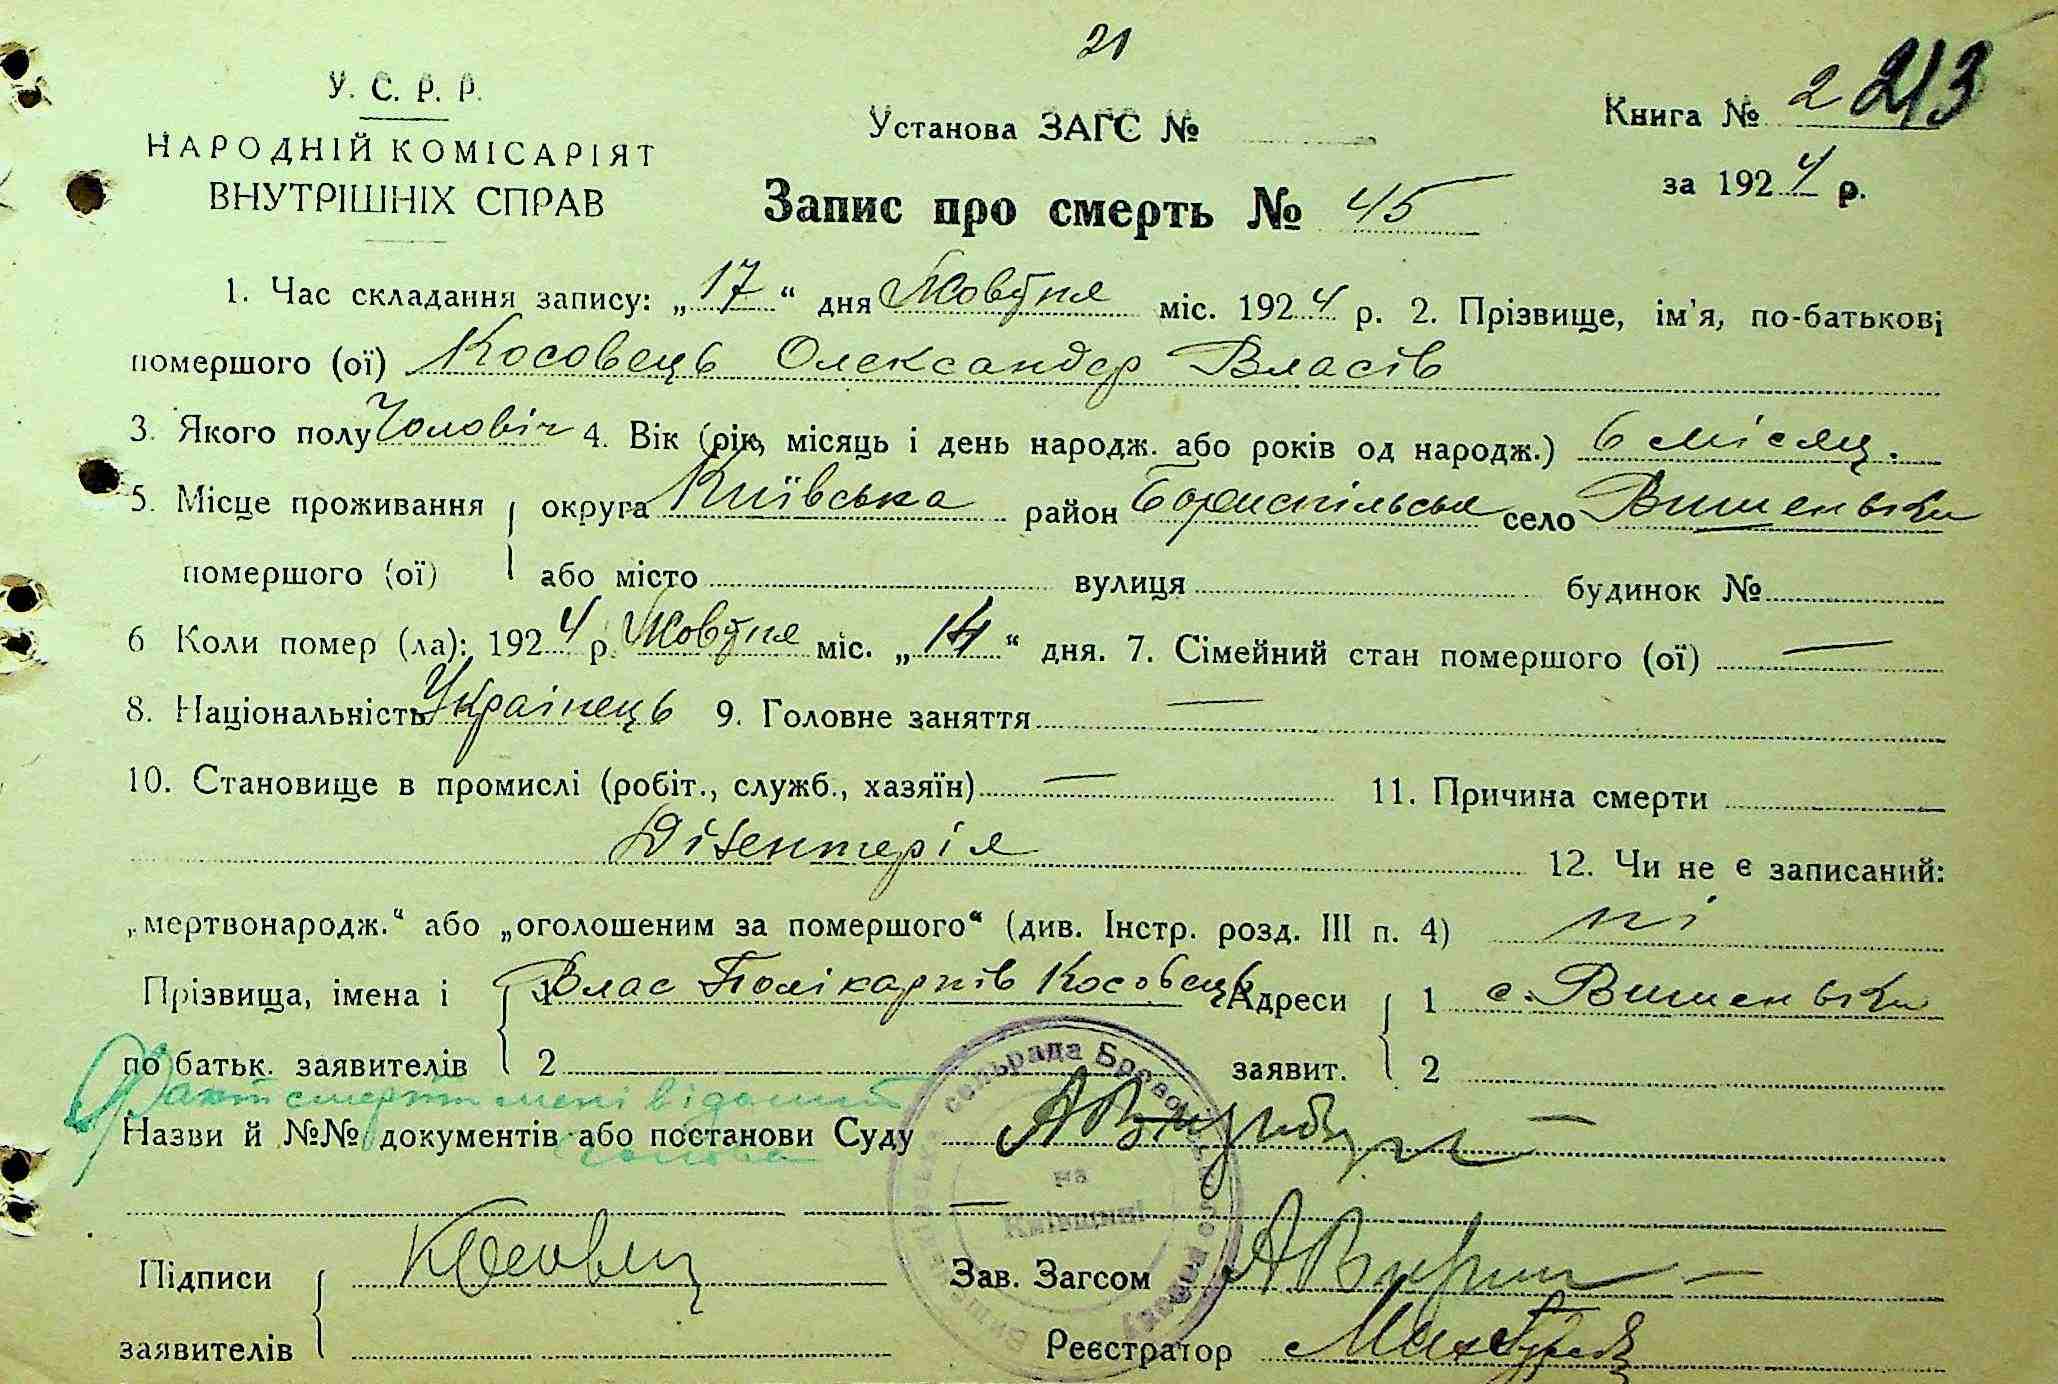 21
У. С. Р. Р.
НАРОДНІЙ КОМІСАРІЯТ
ВНУТРІШНІХ СПРАВ
Установа ЗАГС №
Книга № 2 213
за 1924 р.
Запис про смерть № 45
1. Час складання запису: „17“ дня Жовтня міс. 1924 р. 2. Прізвище, ім'я, по-батькові
помершого (ої) Косовець Олександер Власів
3. Якого полу Чоловіч 4. Вік (рік, місяць і день народж. або років од народж.) 6 місяц.
5. Місце проживання округа Київська район Бориспільськ село Вишеньки
помершого (ої) або місто вулиця будинок №
6 Коли помер (ла): 1924 р. Жовтня міс. „14“ дня. 7. Сімейний стан помершого (ої) —
8. Національність Українець 9. Головне заняття —
10. Становище в промислі (робіт., служб., хазяїн) — 11. Причина смерти
Дізентерія
12. Чи не є записаний:
„мертвонародж.“ або „оголошеним за помершого“ (див. Інстр. розд. III п. 4) ні
Прізвища, імена і 1 Влас Полікарпів Косовець Адреси 1 с. Вишеньки
по батьк. заявителів 2 заявит. 2
Факт смерти мені відомий
Назви й №№ документів або постанови Суду
голова
сельрада Бровар
на
Київщині
Підписи Косовец Зав. Загсом
заявителів Реєстратор